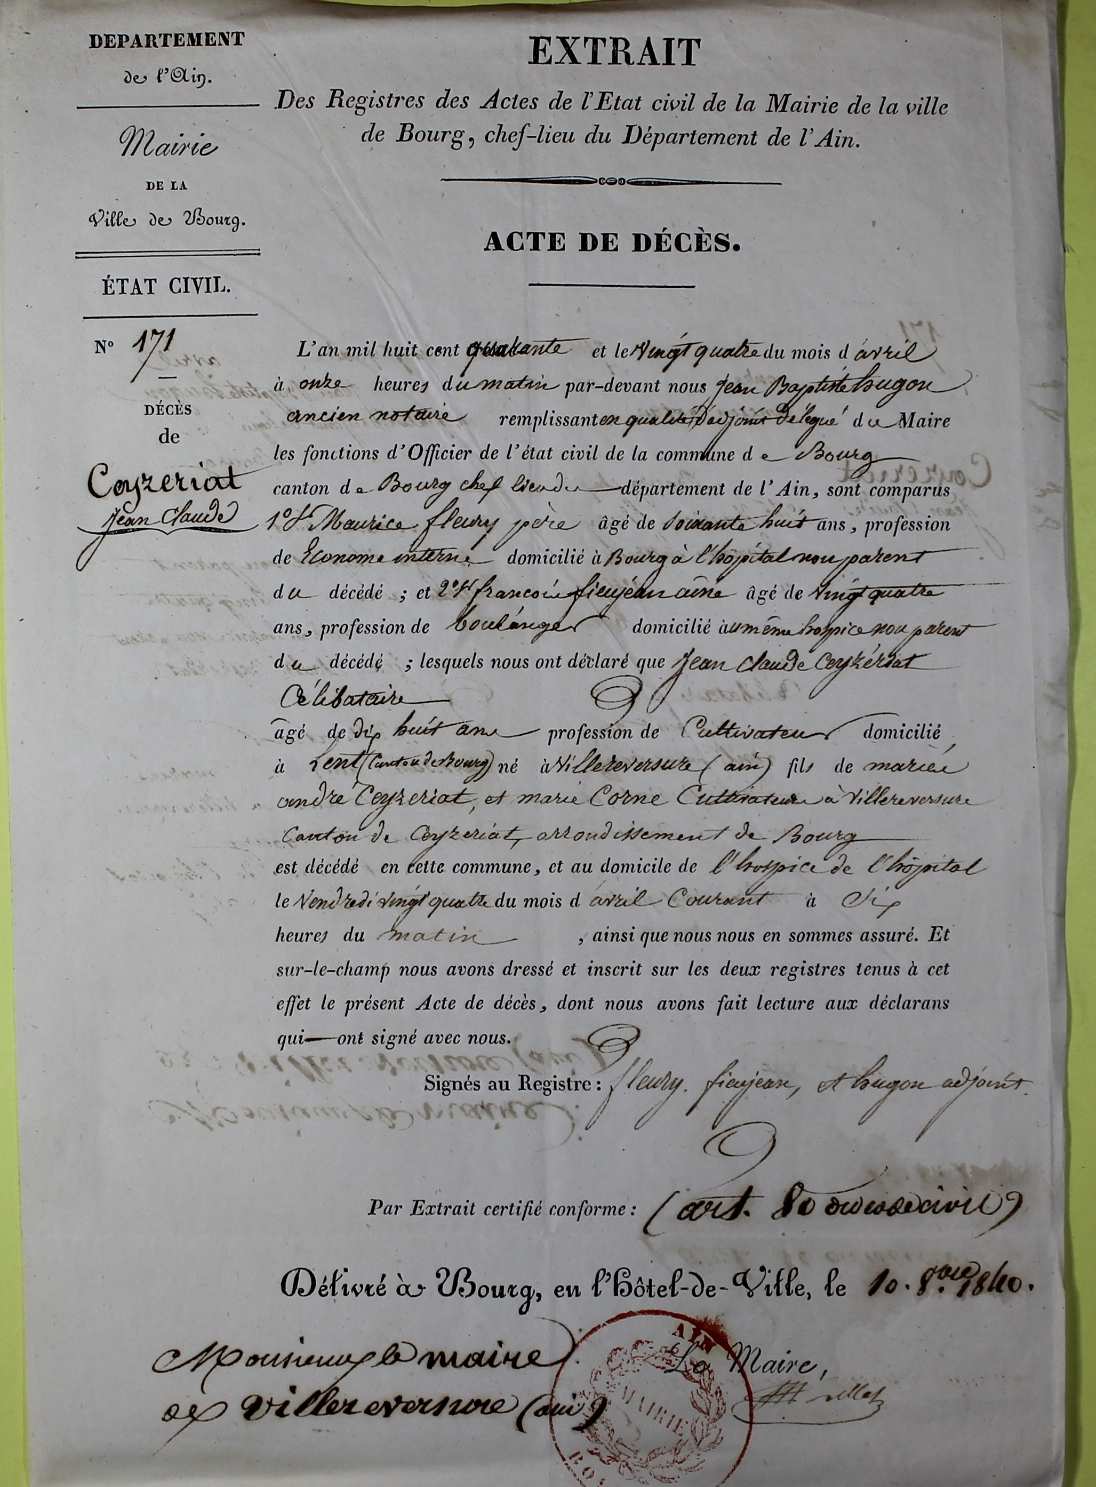 DEPARTEMENT
de l'Ain.
Mairie
DE LA
Ville de Bourg.
ÉTAT CIVIL.
N° 171
DÉCÈS
de
Ceyzeriat
Jean Claude
EXTRAIT
Des Registres des Actes de l'Etat civil de la Mairie de la ville
de Bourg, chef-lieu du Département de l'Ain.
ACTE DE DÉCÈS.
L'an mil huit cent quarante et le vingt quatre du mois d'avril
à onze heures du matin par-devant nous Jean Baptiste hugon
ancien notaire remplissant en qualité d'adjoint délégué du Maire
les fonctions d'Officier de l'état civil de la commune de Bourg
canton de Bourg chef lieu du département de l'Ain, sont comparus
1° Sr Maurice fleury père âgé de soixante huit ans, profession
de Econome interne domicilié à Bourg à l'hôpital non parent
du décédé ; et 2° Sr francois fieujean ainé âgé de vingt quatre
ans, profession de boulanger domicilié au même hospice non parent
du décédé ; lesquels nous ont déclaré que Jean Claude Ceyzériat
Célibataire
âgé de dix huit ans profession de Cultivateur domicilié
à Lent (Canton de Bourg) né à Villereversure (ain) fils de mariés
andré Ceyzeriat, et marie Corne Cultivateurs à Villereversure
Canton de Ceyzeriat, arrondissement de Bourg
est décédé en cette commune, et au domicile de l'hospice de l'hôpital
le Vendredi vingt quatre du mois d'avril Courant à Six
heures du matin , ainsi que nous nous en sommes assuré. Et
sur-le-champ nous avons dressé et inscrit sur les deux registres tenus à cet
effet le présent Acte de décès, dont nous avons fait lecture aux déclarans
qui ont signé avec nous.
Signés au Registre : fleury, fieujean, et hugon adjoint.
Par Extrait certifié conforme : (art. 80 du code civil)
Délivré à Bourg, en l'Hôtel-de-Ville, le 10. 8bre 1840.
Monsieur le maire
de Villereversure (ain)
Le Maire,
AIN
MAIRIE